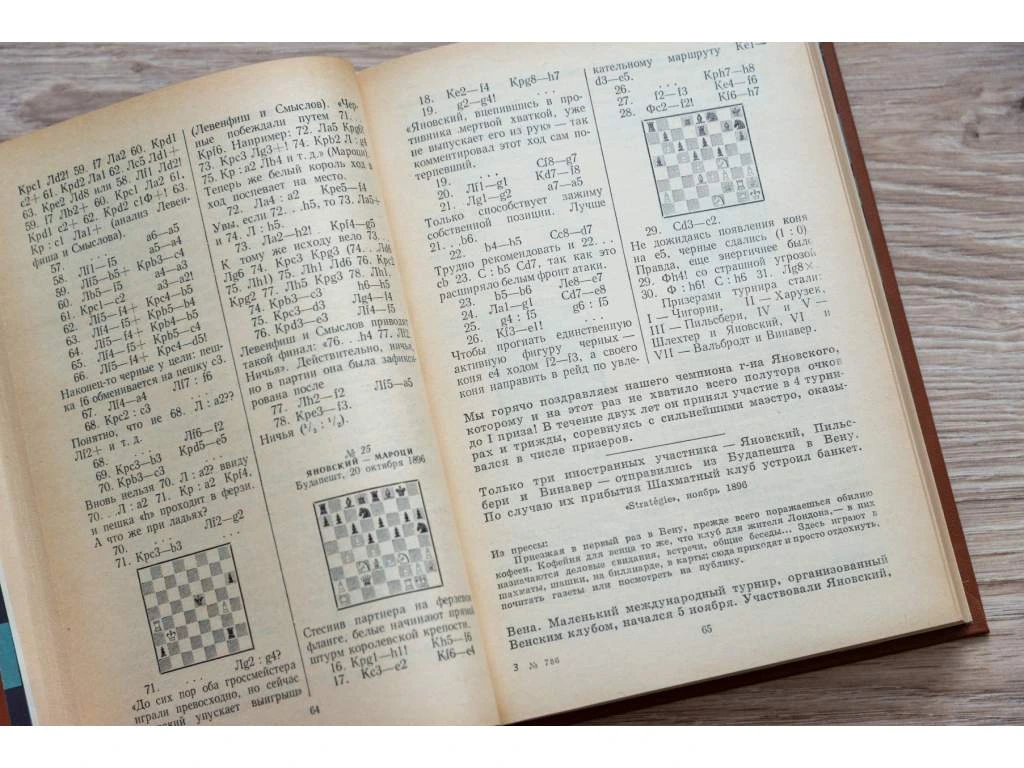 Крс1 Лd2! 59. f7 Ла2 60. Крd1
с2+ 61. Крd2 Ла1 62. Лс5 Лd1+
63. Кре2 Лd8 или 58. Лf1 Лd2!
59. f7 Лb2+ 60. Крс1 Ла2 61.
Крd1 с2+ 62. Крd2 с1Ф+! 63.
Кр : с1 Ла1+ (анализ Левен-
фиша и Смыслова).
57. . . . а6—а5
58. Лf1—f5 а5—а4
59. Лf5—b5+ Крb3—с4
60. Лb5—f5 а4—а3
61. Крс1—с2 а3—а2!
62. Лf5—f4+ Крс4—b5
63. Лf4—f5+ Крb5—b4
64. Лf5—f4+ Крb4—b5
65. Лf4—f5+ Крb5—с4
66. Лf5—f4+ Крс4—d5!
Наконец-то черные у цели: пеш-
ка f6 обменивается на пешку с3.
67. Лf4—а4 Лf7 : f6
68. Крс2 : с3 . . .
Понятно, что не 68. Л : а2??
Лf2+ и т. д.
68. . . . Лf6—f2
69. Крс3—b3 Крd5—е5
70. Крb3—с3
Вновь нельзя 70. Л : а2? ввиду
70. . .Л : а2 71. Кр : а2 Крf4,
и пешка «h» проходит в ферзи.
А что же при ладьях?
70. . . . Лf2—g2
71. Крс3—b3
71. . . . Лg2 : g4?
«До сих пор оба гроссмейстера
играли превосходно, но сейчас
упускает выигрыш»
64
(Левенфиш и Смыслов). «Чер-
ные побеждали путем 71. . .
Крf6. Например: 72. Ла5 Крg6!
73. Крс3 Лg3+! 74. Крb2 Л : g4
75. Кр : а2 Лb4 и т. д.» (Мароци).
Теперь же белый король ход в
ход поспевает на место.
72. Ла4 : а2 Кре5—f4
Увы, если 72. . .h5, то 73. Ла5+
и 74. Л : h5.
73. Ла2—h2! Крf4—g5
К тому же исходу вело 73. . .
Лg6 74. Крс3 Крg5 (74. . .Лd6
75. Лh1) 75. Лh1 Лd6 76. Крс2
Крg2 77. Лh5 Крg3 78. Лh1.
74. Крb3—с3 h6—h5
75. Крс3—d3 Лg4—f4
76. Крd3—е3 Лf4—f5
Левенфиш и Смыслов приводят
такой финал: «76. . .h4 77. Лf2.
Ничья». Действительно, ничья,
но в партии она была зафикси-
рована после
77. Лh2—f2 Лf5—а5
78. Кре3—f3.
Ничья (½ : ½).
№ 25
ЯНОВСКИЙ — МАРОЦИ
Будапешт, 20 октября 1896
Стеснив партнера на ферзевом
фланге, белые начинают прямой
штурм королевской крепости.
16. Крg1—h1! Кh5—f6
17. Кс3—е2 Кf6—е4
18. Ке2—f4 Крg8—h7
19. g2—g4! . . .
«Яновский, вцепившись в про-
тивника мертвой хваткой, уже
не выпускает его из рук» — так
комментировал этот ход сам по-
терпевший.
19. . . . Сf8—g7
20. Лf1—g1 Кd7—f8
21. Лg1—g2 а7—а5
Только способствует зажиму
собственной позиции. Лучше
21. . .b6.
22. b4—b5 Сс8—d7
Трудно рекомендовать и 22. . .
сb 23. С : b5 Сd7, так как это
расширяло белым фронт атаки.
23. b5—b6 Ле8—е7
24. Ла1—g1 Сd7—е8
25. g4 : f5 g6 : f5
26. Кf3—е1! . . .
Чтобы прогнать единственную
активную фигуру черных —
коня е4 ходом f2—f3, а своего
коня направить в рейд по увле-
кательному маршруту Ке1—
d3—е5.
26. . . . Крh7—h8
27. f2—f3 Ке4—f6
28. Фс2—f2! Кf6—h7
29. Сd3—с2.
Не дожидаясь появления коня
на е5, черные сдались (1 : 0).
Правда, еще энергичнее было
29. Фh4! со страшной угрозой
30. Ф : h6! С : h6 31. Лg8×.
Призерами турнира стали:
I — Чигорин, II — Харузек,
III — Пильсбери, IV и V —
Шлехтер и Яновский, VI и
VII — Вальбродт и Винавер.
Мы горячо поздравляем нашего чемпиона г-на Яновского,
которому и на этот раз не хватило всего полутора очков
до I приза! В течение двух лет он принял участие в 4 турни-
рах и трижды, соревнуясь с сильнейшими маэстро, оказы-
вался в числе призеров.
Только три иностранных участника — Яновский, Пильс-
бери и Винавер — отправились из Будапешта в Вену.
По случаю их прибытия Шахматный клуб устроил банкет.
«Stratégie», ноябрь 1896
Из прессы:
Приезжая в первый раз в Вену, прежде всего поражаешься обилию
кофеен. Кофейня для венца то же, что клуб для жителя Лондона.— в них
назначаются деловые свидания, встречи, общие беседы... Здесь играют в
шахматы, шашки, на биллиарде, в карты; сюда приходят и просто отдохнуть,
почитать газеты или посмотреть на публику.
Вена. Маленький международный турнир, организованный
Венским клубом, начался 5 ноября. Участвовали Яновский,
65
3 № 786